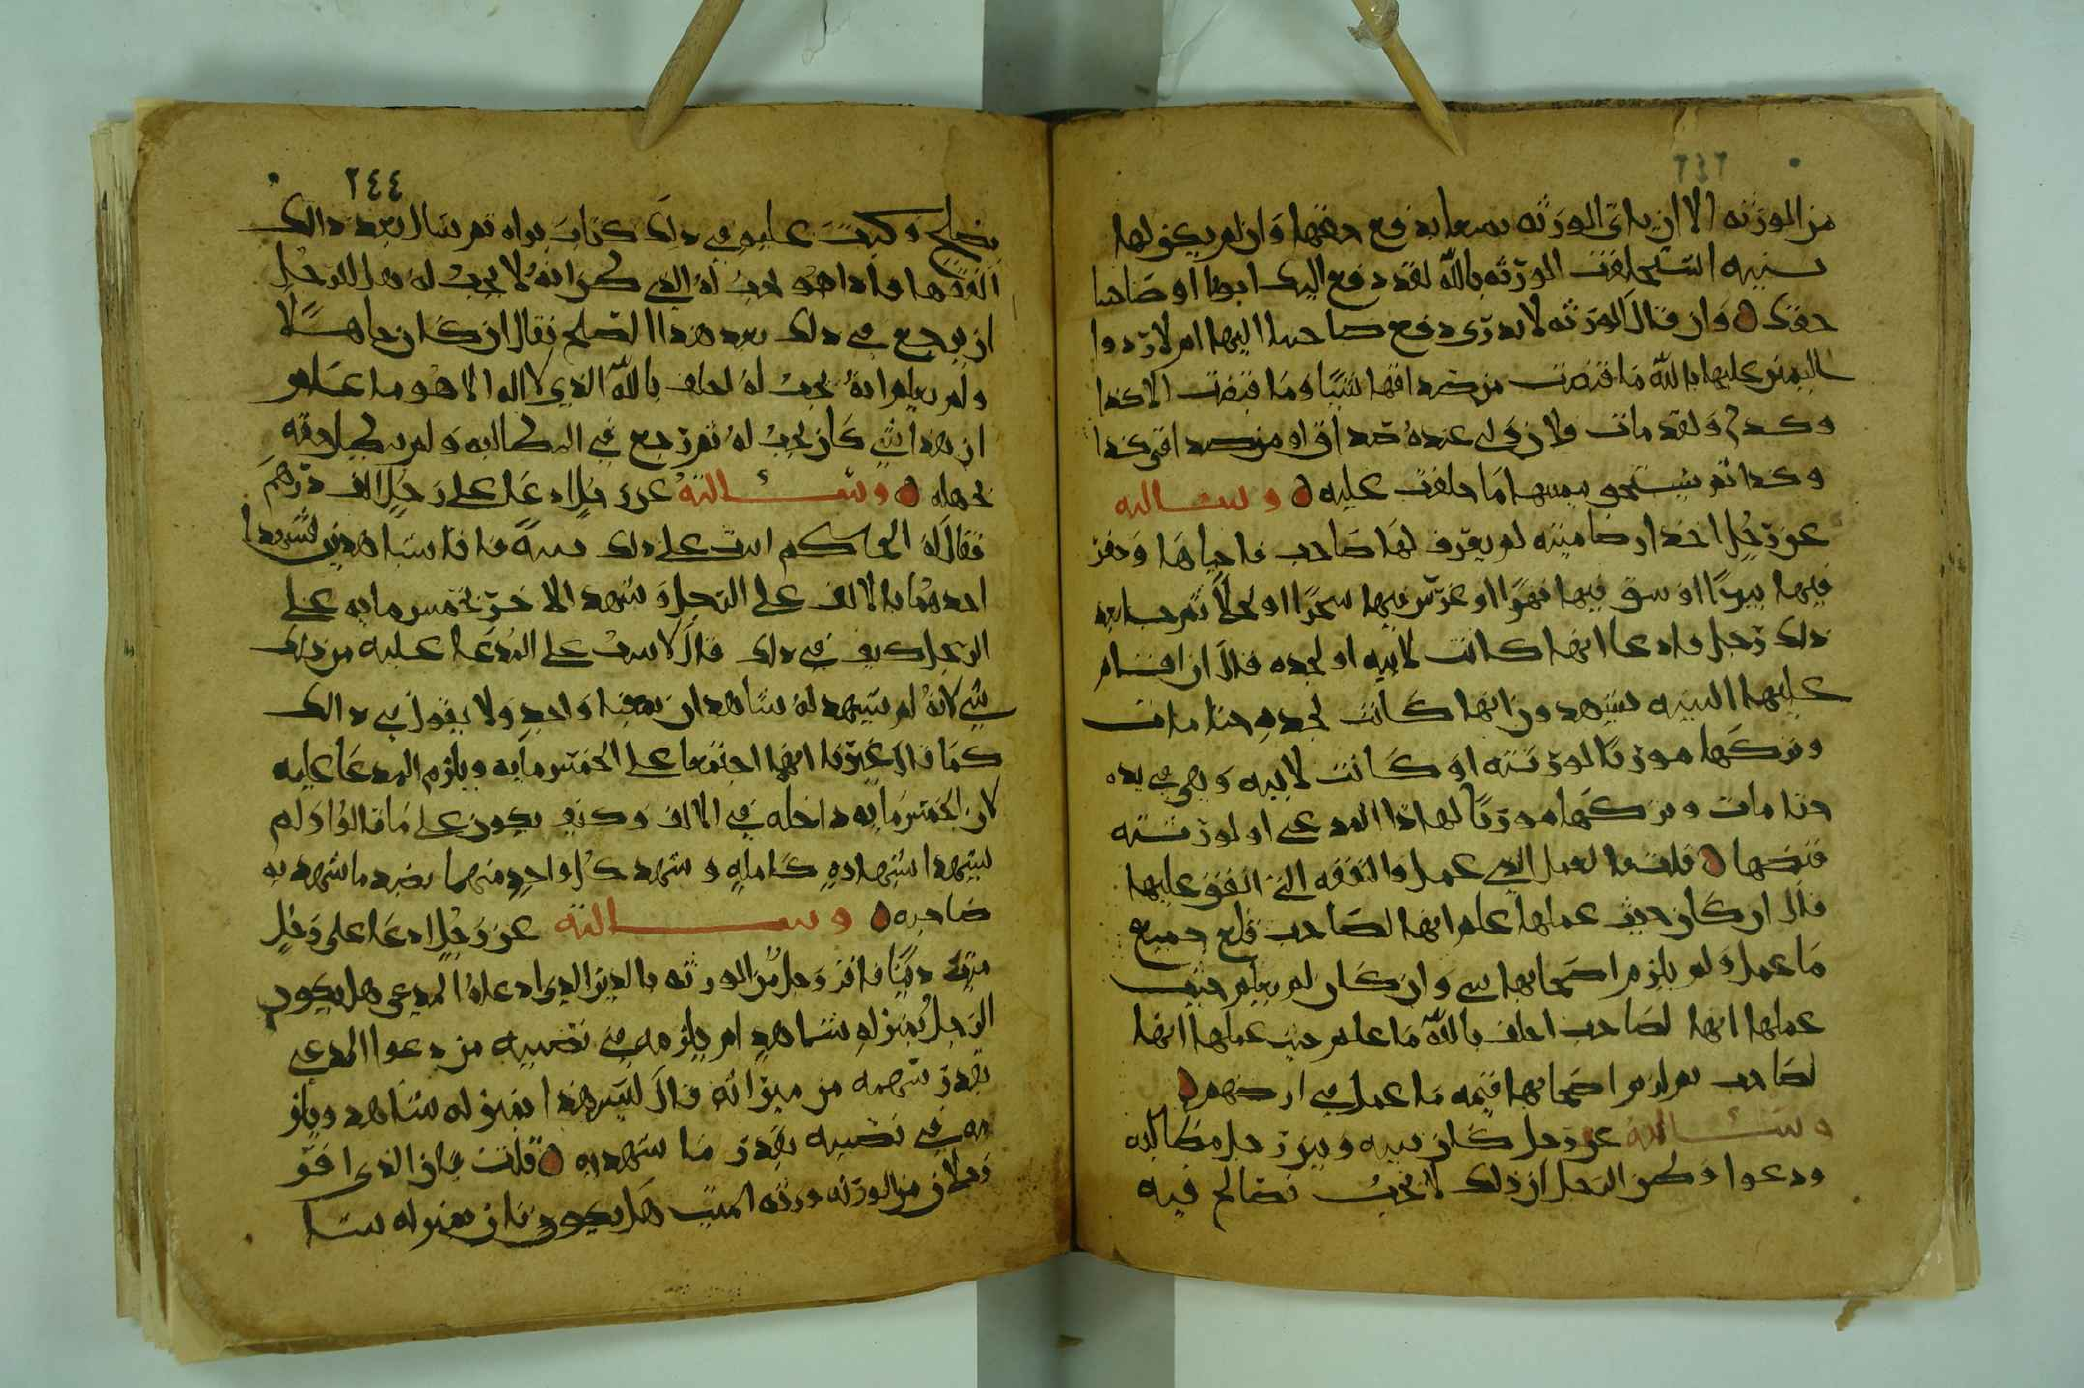 من الورثه الا ان ياتي الورثه بمعا يدفع حقها وان لم يكن لها
بينه استحلفت الورثه بالله لقد دفع اليك ابونا او صاحبنا
حقك ه وان قال الورثه لا ندرى دفع صاحبنا اليها ام لا ردوا
اليمين عليها بالله ما قبضت من صداقها شيئا وما قبضت الا كذا
وكذى ولقد مات فلان ولى عنده صداقى او من صداقى كذا
وكذا ثم تستحق بيمينها ما حلفت عليه ه وسالته
عن رجل اخذ ارضا ميته لم يعرف لها صاحب فاحياها وحفر
فيها بيرًا او سقى فيها نهرًا او غرس فيها شجرًا او نخلًا ثم جا بعد
ذلك رجل فادعا انها كانت لابيه او لجده قال ان اقام
عليها البينه يشهدون انها كانت لجده حتا مات
وتركها مورثا لورثته او كانت لابيه وهي في يده
حتا مات وتركها مورثا لهاذا المدعي او لورثته
قبضها ه قلت فالعمل الذي عمل والنفقه التي انفق عليها
قال ان كان حيث عملها علم انها لصاحب قلع جميع
ما عمل ولم يلزم اصحابها شي وان كان لم يعلم حيث
عملها انها لصاحب احلف بالله ما علم حيث عملها انها
لصاحب ثم لزم اصحابها قيمه ما عمل في ارضهم ه
وسالته عن رجل كان بينه وبين رجل مطالبه
ودعوا وظن الرجل ان ذلك لا يجب فصالح فيه
٢٤٤
بصلح وكتب عليه في ذلك كتاب براه ثم سال بعد ذالك
الفقها فاذا هو يجب له الذي ظن انه لا يجب له هل للرجل
ان يرجع في ذلك بعد هذا الصلح فقال ان كان جاهلا
ولم يعلم انه يجب له احلف بالله الذي لا اله الا هو ما علم
ان هذا شي كان يجب له ثم رجع في المطالبه ولم يبطل حقه
بجهله ه وسالته عن رجل ادعا على رجل الف درهم
فقال له الحاكم ايت على ذلك بينة فاتا بشاهدين فشهدا
احدهما بالالف على الرجل وشهد الاخر بخمس مايه على
الرجل كيف في ذلك قال لا يثبت على المدعا عليه من ذلك
شي لانه لم يشهد له شاهدان بمعنا واحد ولا نقول في ذالك
كما قال غيرنا انهما اجتمعا على الخمس مايه ويلزم المدعا عليه
لان الخمس مايه داخله في الالف وكيف يكون على ما قالوا ولم
يشهدا شهاده كامله وشهد كل واحد منهما بضد ما شهد به
صاحبه ه وسالته عن رجل ادعا على رجل
ميت دينا فاقر رجل من الورثه بالدين الذي ادعاه المدعي هل يكون
الرجل بمنزله شاهد ام يلزمه في نصيبه من دعوا المدعي
بقدر سهمه من ميراثه قال ليس هذا بمنزله شاهد ويلز
مه في نصيبه بقدر ما شهد به ه قلت فان الذي اقر
رجلان من الورثه ورثه الميت هل يكونان بمنزله شا